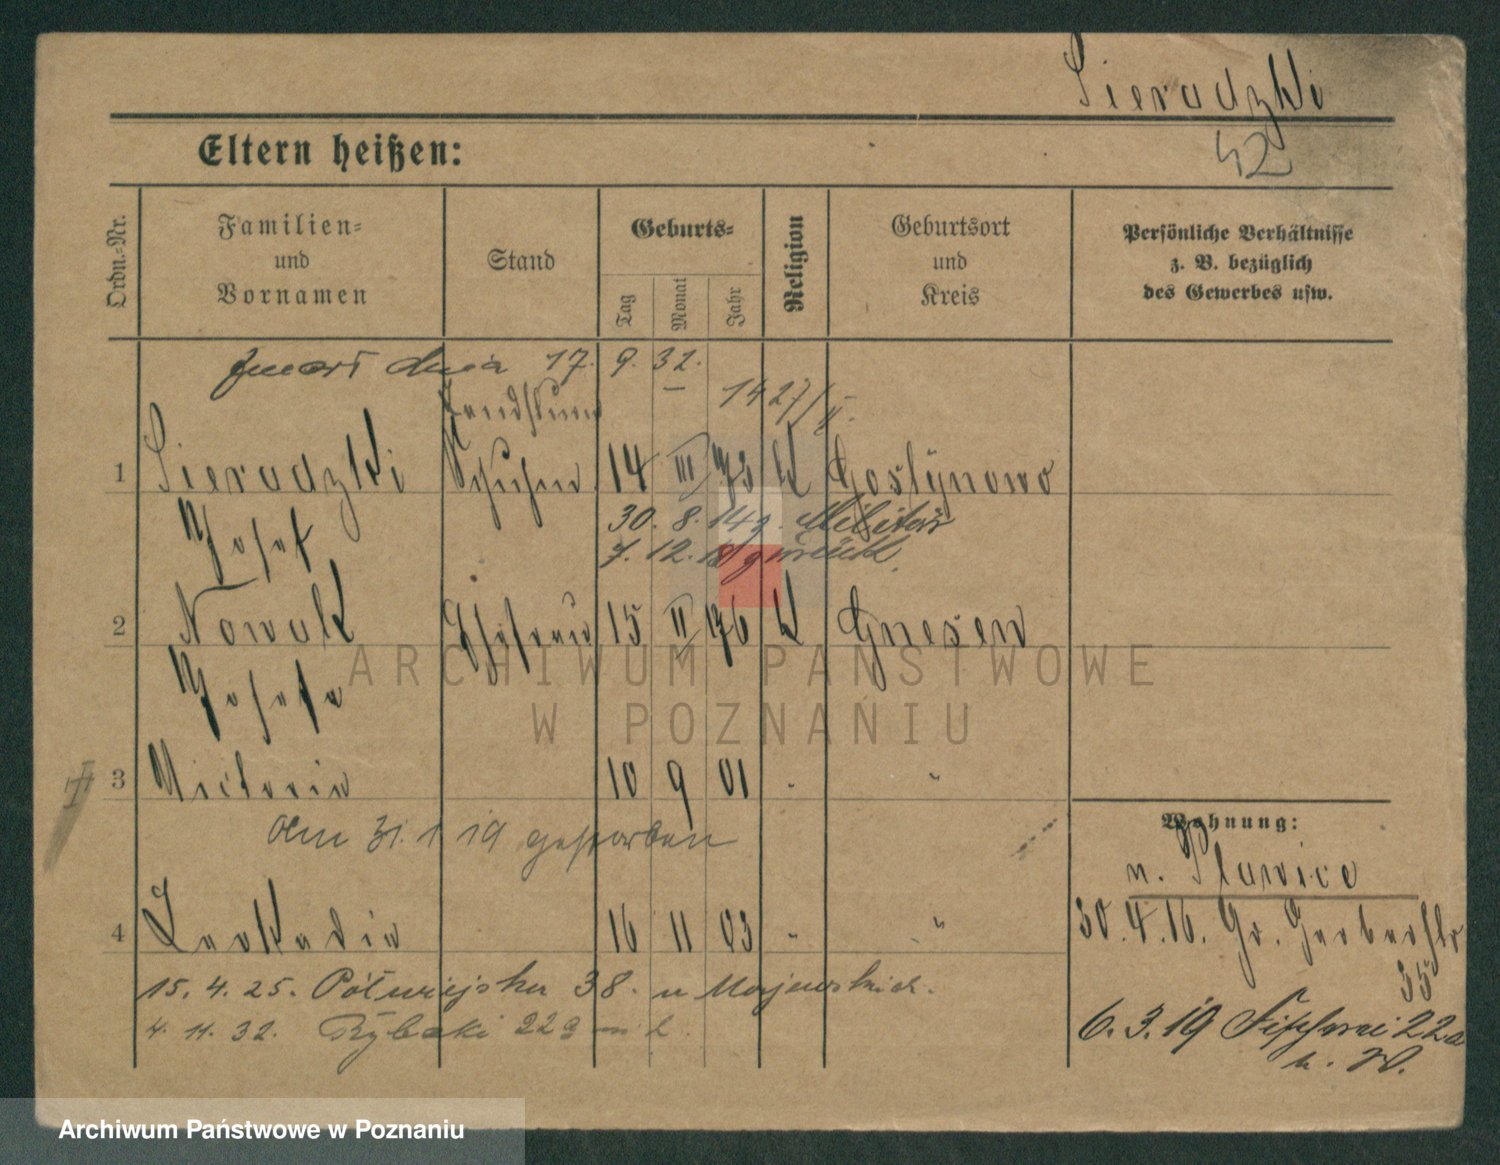 Sieradzki
42
Eltern heißen:
Ordn.-Nr.
Familien-
und
Vornamen
Stand
Geburts-
Tag
Monat
Jahr
Religion
Geburtsort
und
Kreis
Persönliche Verhältnisse
z. B. bezüglich
des Gewerbes usw.
zmarł dnia 17. 9. 32.
1427/II.
1 Sieradzki 14 III 73 K Gostynowo
Josef
30. 8. 14 z. Militär
7. 12. 18 zurück.
2 Nowak Ehefrau 15 II 76 K Gnesen
Josefa
3 Victoria 10 9 01 " "
Am 31. 1 19 gestorben
4 Leokadia 16 11 03 " "
15. 4. 25. Półwiejska 38. u
4. 11. 32. Rybaki 22a m
Wohnung:
n. Plawice
30. 4. 16. Gr. Gerberstr
35
6. 3. 19 Fischerei 22a
ARCHIWUM PAŃSTWOWE
W POZNANIU
Archiwum Państwowe w Poznaniu